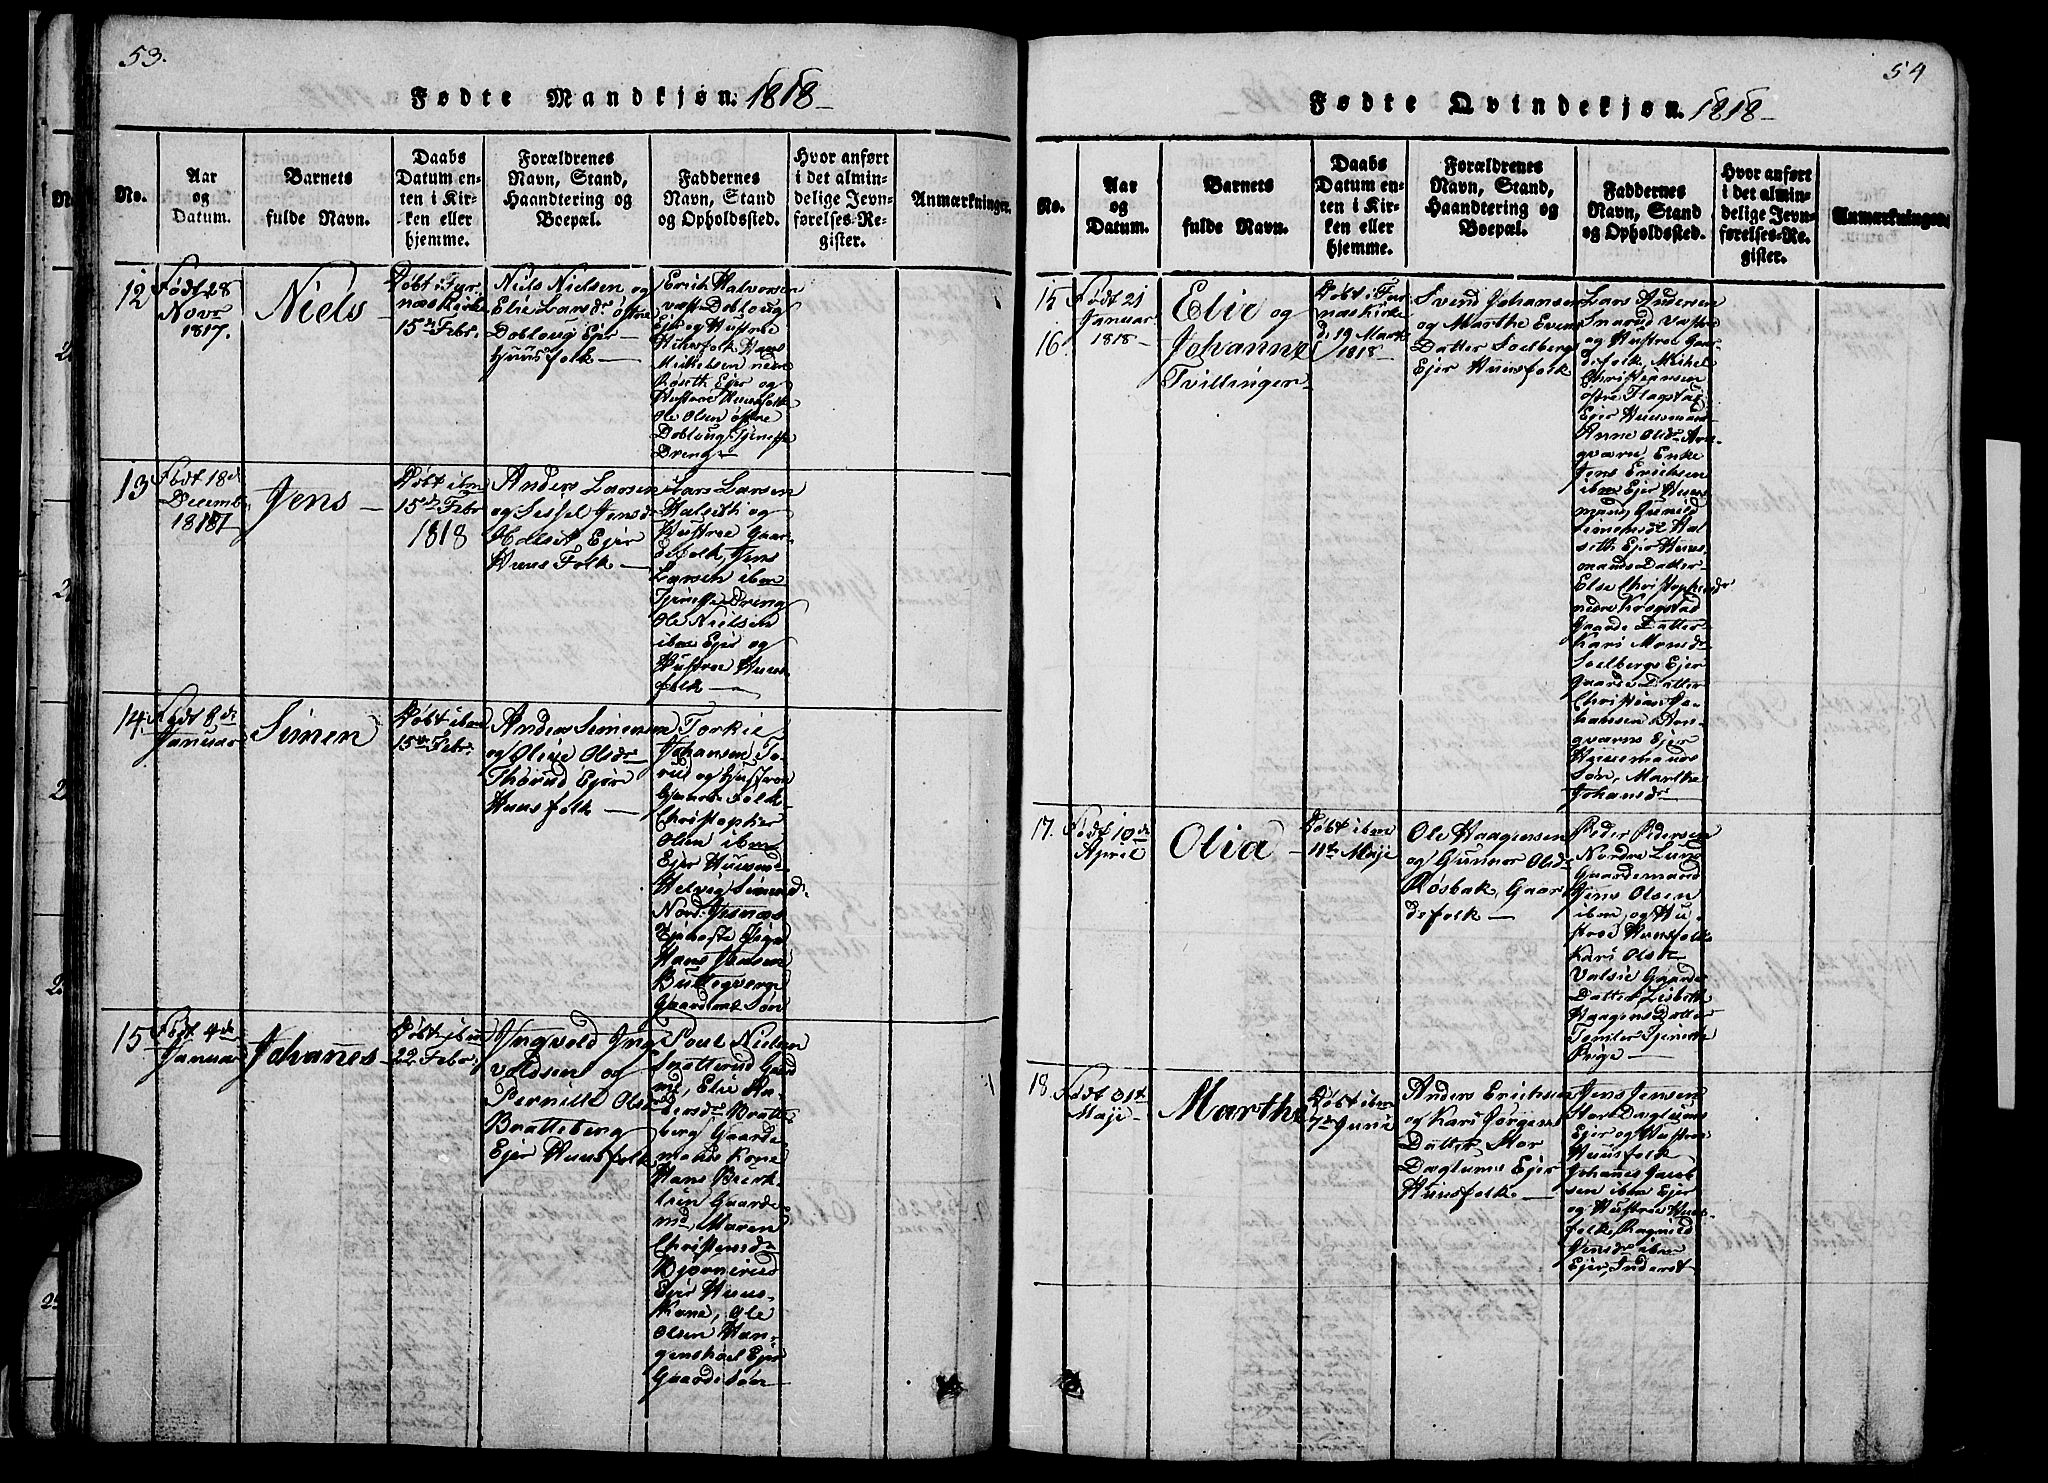 53.
Fødte Mandkjøn. 1818 –
No.
Aar
og
Datum.
Barnets
fulde Navn.
Daabs
Datum en-
ten i Kir-
ken eller
hjemme.
Forældrenes
Navn, Stand,
Haandtering og
Boepæl.
Faddernes
Navn, Stand
og Opholdssted.
Hvor anført
i det almin-
delige Jevn-
førelses-Re-
gister.
Anmærkninger.
12
Født 28
Novr
1817.
Niels
Døbt i Fur-
næs Kirke
15de Febr.
Niels Nielsen og
Elie Larsdr østre
Dobloug Ejer
Huusfolk –
Erich Halvorsen
vest. Doblaug
Ejer og Hustroe
Huusfolk, Hans
Mickelsen nedre
Roseth Ejer og
Hustroe Huusfolk
Ole Olsen østre
Doblaug Tjeneste
Dreng –
13
Født 18de
Decembr
1817
Jens –
Døbt ibm
15de Febr
1818
Anders Larsen
og Sissel Jensdr
Halset Ejer
Huus Folk –
Lars Larsen
Halseth og
Hustroe Gaar-
defolk, Jens
Larsen ibm
Tjeneste Dreng
Ole Nielsen
ibm Ejer og
Hustroe Huus-
folk –
14
Født 8de
Januar
Simen
Døbt ibm
15de Febr.
Anders Simensen
og Olive Olsdr
Thorud Ejer
Huusfolk –
Torkie
Johansen To-
rud og Hustroe
Gaarde Folk
Christopher
Olsen ibm
Ejer Huusm.
Helvig Simensdr
Nord. Jesnæs
Tjeneste Pige
Hans Jensen
Buttegverge
Gaardms Søn
15
Født 4de
Januar
Johanes –
Døbt ibm
22 Febr.
Yngvold Yng-
voldsen og
Pernille Olsdr
Bratteberg
Ejer Huusfolk
Poul Nielsen
Snatterud Gaard
md, Elie Ra-
bersdr Bratte-
berg Gaarde
mands Kone
Hans Bierk-
lien Gaarde
md, Maren
Christensdr
Bjørnerud
Ejer Huus-
Kone, Ole
Olsen Hau-
genshoel Ejer
Gaarde søn –
54
Fødte Qvindekjøn. 1818 –
No.
Aar
og
Datum.
Barnets
fulde Navn.
Daabs
Datum en-
ten i Kir-
ken eller
hjemme.
Forældrenes
Navn, Stand,
Haandtering og
Boepæl.
Faddernes
Navn, Stand
og Opholdssted.
Hvor anført
i det almin-
delige Jevn-
førelses-Re-
gister.
Anmærkninger.
15
16
Født 21
Januar
1818 –
Elie og
Johanne
Tvillinger –
Døbt i Fur-
næs Kirke
d. 19 Marts
1818 –
Svend Johansen
og Marthe Evens
Datter Soelberg
Ejer Huusfolk
Lars Andersen
Snarud Vestre
og Hustroe Gaar-
defolk, Michel
Christiansen
østre Flagstad
Ejer Huusmand
Anne Olsdr Arn-
qværn Enke
Jens Erichsen
ibm Ejer Huus-
mand, Gunild
Simensdr Hal-
seth Ejer Huus-
mands Datter
Else Christophersdr
nedre Krogstad
Gaarde Datter
Kari Monsdr
Soelbergs Ejer
Gaarde Datter
Christian Jo-
hansen Arn-
qværns Ejer
Huusmands
Søn, Marthe
Johansdr
17.
Født 10de
April
Olia –
Døbt ibm
11te Maje
Ole Haagensen
og Gunnor Olsdr
Røsbak, Gaar
defolk –
Peder Pedersen
Nordre Lund
Gaardemand
Jens Olsen
ibm, og Hu-
stroe Huusfolk
Kari Olsdr
Valsie Gaarde
Datter Lisbeth
Haagens Datter
Tomter Tjeneste
Pige –
18
Født 31te
Maje –
Marthe
Døbt ibm
7de Junie
Anders Erichsen
og Kari Jørgens
Datter Stor
Daglums Ejer
Huusfolk –
Jens Jensen
Stor Daglums
Ejer og Hustroe
Huusfolk
Johanes Jacob-
sen ibm Ejer
og Hustroe Huus-
folk, Ragnild
Jensdr ibm
Ejer, Inderst